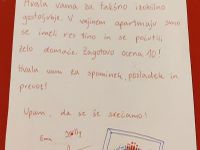 Hvala vama za takšno izobilno
gostoljubje. V vajinem apartmaju smo
se imeli res fino in se počutili
zelo domače. Zagotovo ocena 10!
Hvala vam za spominek, posladek in
prevoz!
Upam, da se še srečamo!
Ema